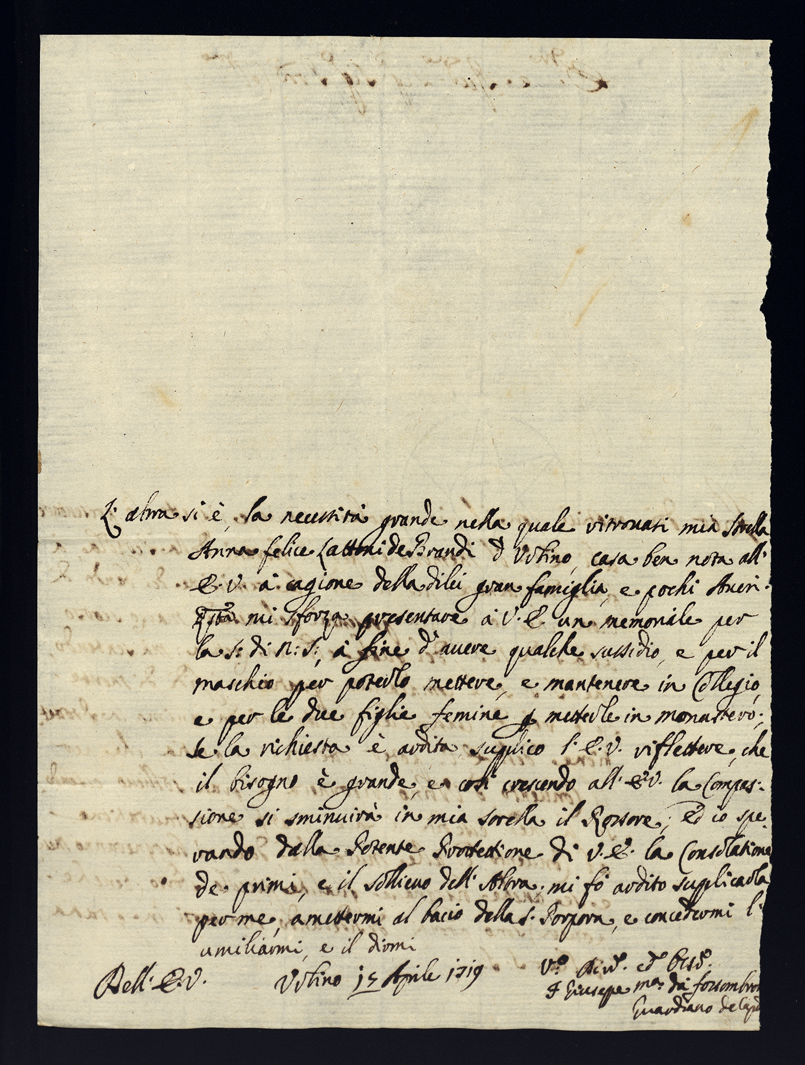 L'altra si è, la necessità grande nella quale ritrovasi mia Sorella
Anna felice Lattini de Brandi d'Urbino, casa ben nota all'
E. V. à cagione della di lei gran famiglia, e pochi Averi.
mi sforza presentare à V. E. un memoriale per
la S: di N: S:, à fine d'avere qualche sussidio, e per il
maschio per poterlo mettere, e mantenere in Collegio,
e per le due figlie femine metterle in monastero;
se la richiesta è ardita, suplico l'E. V. riflettere, che
il bisogno è grande, e così crescendo all'E. V. la Compas-
sione si sminuirà in mia sorella il Rossore; Ed io spe-
rando dalla Potente Protettione di V. E. la Consolatione
de primi, e il sollievo dell'Altra, mi fò ardito suplicarla
per me, ametermi al bacio della S. Porpora, e concedermi l'
umiliarmi, e il dirmi
Dell'E. V. Urbino 15 Aprile 1719
F Giuseppe Ma: da fossombrone
Guardiano de